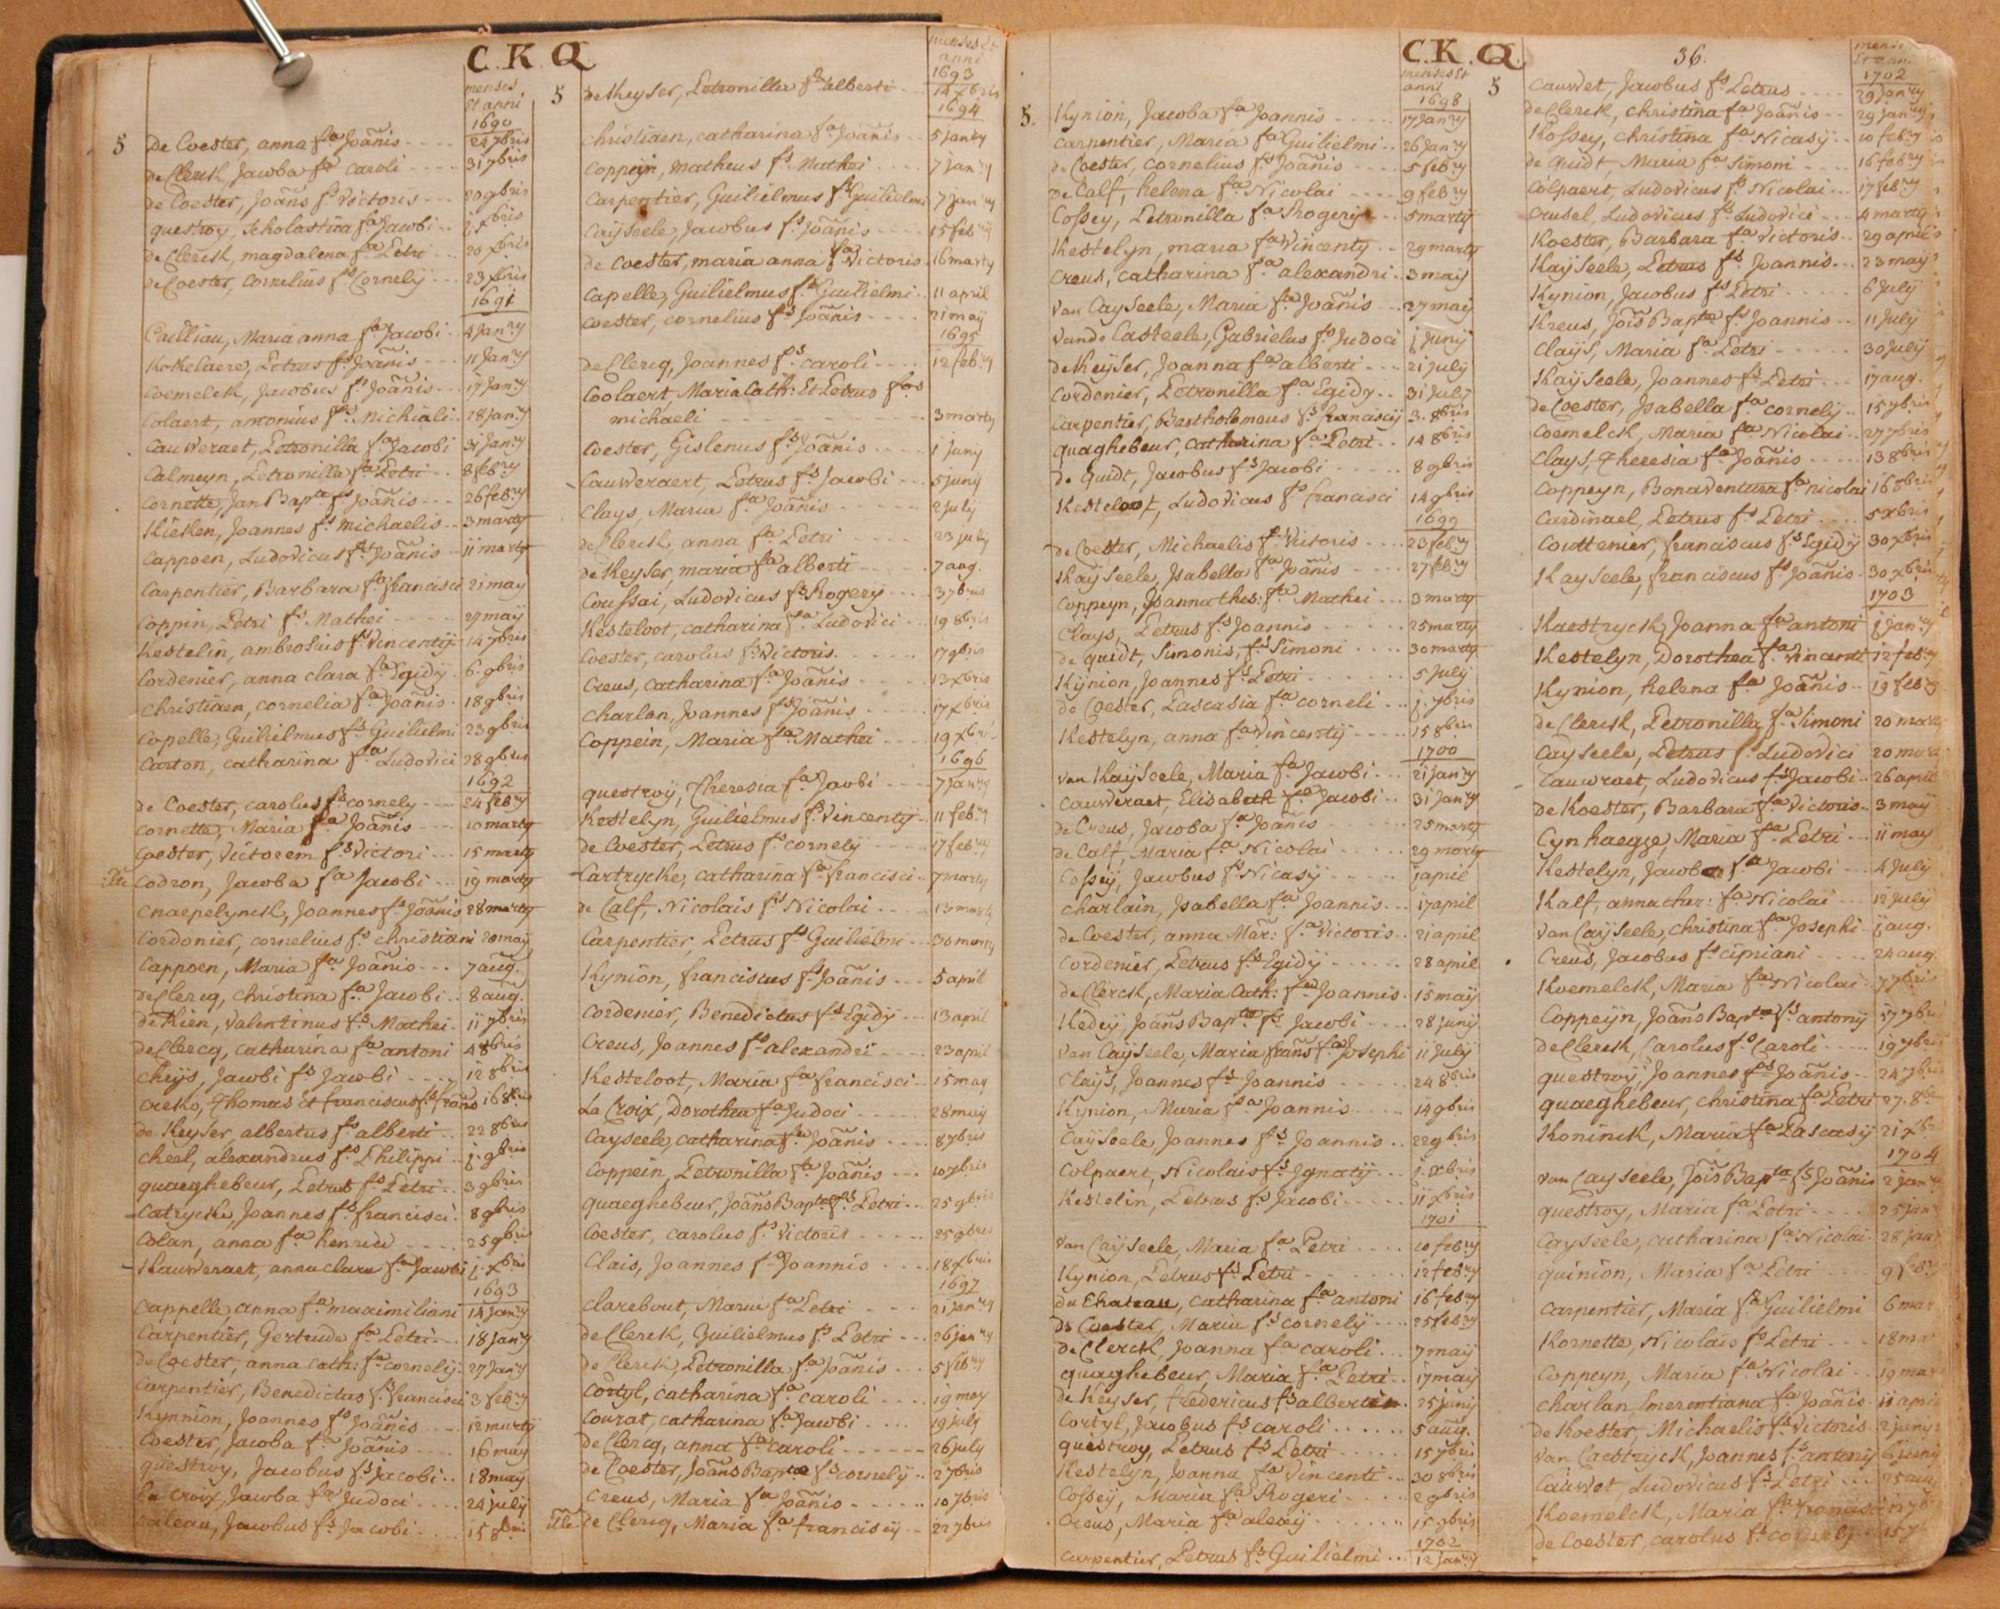 C. K. Q
menses
Et anni
1690
5 de Coester, anna fa Joãnis 24 7bris
de Clerck Jacoba fa caroli 31 7bris
de Coester, Joãns fs victoris 20 9bris
questroy, scholastica fa Jacobi 1 xbris
de Clerck, magdalena fa Petri 20 xbris
de Coester, cornelius fs Cornely 23 xbris
1691
Cailliau, Maria anna fa Jacobi 4 Janry
Kokelaere, Petrus fs Joãnis 11 Janry
Coemelck, Jacobus fs Joãnis 17 Janry
Colaert, antonius fs Michiali 28 Janry
Cauweraet, Petronilla fa Jacobi 31 Janry
Calmeyn, Petronilla fa Petri 8 febry
Cornette, Jan Bapta fs Joãnis 26 febry
Kieken, Joannes fs Michaelis 3 marty
Cappoen, Ludovicus fs Joãnis 11 marty
Carpentier, Barbara fa francisci 21 may
Coppin, Petri fs Mathei 27 maÿ
Kestelin, ambrosius fs Vincentÿ 14 7bris
Cordenier, anna clara fa Egidÿ 6 9bris
Christiaen, cornelia fa Joãnis 18 9bris
Capelle, Guilielmus fs Guilielmi 23 9bris
Carton, catharina fa Ludovici 28 9bris
1692
de Coester, carolus fs cornely 24 febry
Cornette, Maria fa Joãnis 10 marty
Coester, Victorem fs Victori 15 marty
Codron, Jacoba fa Jacobi 19 marty
Cnaepelynck, Joannes fs Joãnis 28 marty
Cordonier, cornelius fs christiani 20 maÿ
Cappoen, Maria fa Joãnis 7 aug.
de Clercq, christina fa Jacobi 8 aug.
de Kien, Valentinus fs Mathei 11 7bris
de Clercq, catharina fa antoni 4 8bris
Cheÿs, Jacobi fs Jacobi 12 8bris
Creko, Thomas et franciscus fs frãns 16 8bris
de Keyser, albertus fs alberti 22 8bris
Cheel, alexandrus fs Philippi 1 9bris
quaeghebeur, Petrus fs Petri 3 9bris
Catrycke, Joannes fs francisci 8 9bris
Colan, anna fa henrici 25 9bris
Kauweraet, anna clara fa Jacobi 1 xbris
1693
Cappelle, anna fa maximiliani 14 Janry
Carpentier, Gertrude fa Petri 18 Janry
de Coester, anna cath: fa cornelÿ 27 Janry
Carpentier, Benedictus fs francisci 3 febry
Kynnion, Joannes fs Joãnis 12 marty
Coester, Jacoba fa Joãnis 16 may
questroy, Jacobus fs Jacobi 18 may
La Croix, Jacoba fa Judoci 24 july
Jacobus fs Jacobi 15 8bris
menses Et
anni
1693
5 de Keyser, Petronilla fa alberti 14 xbris
1694
Christiaen, catharina fa Joãnis 5 janry
Coppeyn, Matheus fs Mathei 7 janry
Carpentier, Guilielmus fs Guilielmi 7 janry
Cayseele, Jacobus fs Joãnis 15 febry
de Coester, maria anna fa Victoris 16 marty
Capelle, Guilielmus fs Guilielmi 11 april
Coester, cornelius fs Joãnis 21 maÿ
1695
de Clercq, Joannes fs caroli 12 febry
Coolaert, Maria Cath: Et Petrus fs
michaeli 3 marty
Coester, Gislenus fs Joãnis 1 juny
Cauweraert, Petrus fs Jacobi 5 juny
Clays, Maria fa Joãnis 2 july
de Clerck anna fa Petri 23 july
de Keyser maria fa alberti 7 aug.
Coussai, Ludovicus fs Rogery 3 7bris
Kesteloot, catharina fa Ludovici 19 8bris
Coester, carolus fs Victoris 17 9bris
Creus, catharina fa Joãnis 13 xbris
Charlon, Joannes fs Joãnis 17 xbris
Coppein, Maria fa Mathei 19 xbris
1696
questroÿ, Theresia fa Jacobi 7 janry
Kestelyn, Guilielmus fs Vincenty 11 febry
de Coester, Petrus fs cornelÿ 17 febry
Cartrycke, catharina fa francisci 7 marty
de Calf, Nicolais fs Nicolai 13 marty
Carpentier, Petrus fs Guilielmi 30 marty
Kynion, franciscus fs Joãnis 5 april
Cordenier, Benedictus fs Egidÿ 13 april
Creus, Joannes fs alexandri 23 april
Kesteloot, Maria fa francisci 15 may
La Croix, Dorothea fa Judoci 28 maÿ
Cayseele, catharina fa Joãnis 8 7bris
Coppein, Petronilla fa Joãnis 10 7bris
quaeghebeur, Joãns Bapta fs Petri 25 9bris
Coester, carolus fs Victoris 25 9bris
Clais, Joannes fs Joannis 18 xbris
1697
Clarebout, Maria fa Petri 21 janry
de Clerck, Guilielmus fs Petri 26 janry
de Clerck, Petronilla fa Joãnis 5 febry
Cortyl, catharina fa caroli 19 may
Courat, catharina fa Jacobi 19 july
de Clercq, anna fa caroli 26 july
de Coester, Joãns Bapta fs cornelÿ 2 7bris
Creus, Maria fa Joãnis 10 7bris
de Clercq, Maria fa franciscÿ 22 7bris
C. K. Q.
menses Et
anni
1698
5. Kynion, Jacoba fa Joannis 17 Janry
Carpentier, Maria fa Guilielmi 26 Janry
de Coester, cornelius fs Joãnis 5 febry
de Calf, helena fa Nicolai 9 febry
Cossey, Petronilla fa Rogery 5 marty
Kestelyn, maria fa Vincenty 29 marty
Creus, catharina fa alexandri 3 may
Van Cayseele, Maria fa Joãnis 27 maÿ
Vande Casteele, Gabrielus fs Judoci 1 junÿ
de Keyser, Joanna fa alberti 21 july
Cordenier, Petronilla fa Egidy 31 july
Carpentier, Bartholomeus fs franciscÿ 3 8bris
quaghebeur, catharina fa Petri 14 8bris
de Quidt, Jacobus fs Jacobi 8 9bris
Kesteloot, Ludovicus fs francisci 14 9bris
1699
de Coester, Michaelis fs Victoris 23 febry
Kaÿseele, Isabella fa Joãnis 27 febry
Coppeyn, Joanna thes: fa Mathei 3 marty
Clays, Petrus fs Joannis 25 marty
de quidt, Simonis, fs Simoni 30 marty
Kÿnion, Joannes fs Petri 5 july
de Coester, Pascasia fa corneli 1 7bris
Kestelyn, anna fa Vincentÿ 15 8bris
1700
van Kaÿseele, Maria fa Jacobi 21 janry
Cauweraet, Elisabeth fa Jacobi 31 Janry
de Creus, Jacoba fa Joãnis 25 marty
de Calf, Maria fa Nicolai 29 marty
Cosseÿ, Jacobus fs Nicasÿ 1 april
Charlain, Isabella fa Joannis 17 april
de Coester, anna Mar: fa Victoris 21 april
Cordenier, Petrus fs Egidÿ 28 april
de Clerck, Maria Cath: fa Joannis 15 maÿ
Kedeÿ, Joãns Bapta fs Jacobi 28 junÿ
Van Caÿseele, Maria frãns fa Josephi 11 july
Claÿs, Joannes fs Joannis 24 8bris
Kynion, Maria fa Joannis 14 9bris
Caÿseele, Joannes fs Joannis 22 9bris
Colpaert, Nicolais fs Ignatÿ 1 xbris
Kestelin, Petrus fs Jacobi 11 xbris
1701
Van Caÿseele, Maria fa Petri 10 febry
Kynion, Petrus fs Petri 12 febry
du Chateau, catharina fa antoni 16 febry
de Coester, Maria fa cornelÿ 25 febry
de Clerck, Joanna fa caroli 7 maÿ
quaghebeur, Maria fa Petri 17 maÿ
de Keÿser, fredericus fs alberti 25 junÿ
Cortyl, Jacobus fs caroli 5 aug.
questroy, Petrus fs Petri 15 7bris
Kestelyn, Joanna fa Vincenti 30 8bris
Cosseÿ, Maria fa Rogeri 2 9bris
Creus, Maria fa alexÿ 15 9bris
1702
Carpentier, Petrus fs Guilielmi 12 janry
36.
1702
5 Cauwet, Jacobus fs Petrus 29 Janry
de Clerck, christina fa Joãnis 29 janry
Kossey, christina fa Nicasÿ 10 febry
de Quidt, Maria fa Simoni 16 febry
Colpaert, Ludovicus fs Nicolai 17 febry
Crusel, Ludovicus fs Ludovici 4 marty
Koester, Barbara fa Victoris 29 april
Kaÿseele, Petrus fs Joannis 23 maÿ
Kynion, Jacobus fs Petri 6 july
Kreus, Joĩs Bapta fs Joannis 11 july
Claÿs, Maria fa Petri 30 july
Kaÿseele, Joannes fs Petri 17 aug.
de Coester, Isabella fa cornelÿ 15 7bris
Coemelck, Maria fa Nicolai 27 7bris
Clays, Theresia fa Joãnis 13 8bris
Coppeyn, Bonaventura fa nicolai 16 8bris
Cardinael, Petrus fs Petri 5 xbris
Couttenier, franciscus fs Egidÿ 30 xbris
Kayseele, franciscus fs Joãnis 30 xbris
1703
Kaestryck, Joanna fa antoni 1 janry
Kestelyn, Dorothea fa Vincenti 12 febry
Kynion, helena fa Joãnis 19 febry
de Clerck, Petronilla fa Simoni 20 mart
Cayseele, Petrus fs Ludovici 20 mart
Cauwraet, Ludovicus fs Jacobi 26 april
de Koester, Barbara fa Victoris 3 maÿ
Cynhaegze, Maria fa Petri 11 may
Kestelyn, Jacoba fa Jacobi 4 july
Kalf, anna thar: fa Nicolai 12 july
van Caÿseele, christina fa Josephi 1 aug.
Creus, Jacobus fs cipriani 24 aug
Koemelck, Maria fa Nicolai 7 7bris
Coppeÿn, Joãns Bapta fs antonÿ 17 7bris
de Clerck, Carolus fs Caroli 19 7bris
questroÿ, Joannes fs Joãnis 24 7bris
quaeghebeur, christina fa Petri 27. 8b
Koninck, Maria fa Pascasÿ 21 xb
1704
van Cayseele, Joĩs Bapta fs Joãnis 2 jan
questroy, Maria fa Petri 25 jan
Cayseele, catharina fa Nicolai 28 jan
quinion, Maria fa Petri 9 feb
Carpentier, Maria fa Guilielmi 6 mar
Kornette, Nicolais fs Petri 18 mar
Coppeyn, Maria fa Nicolai 19 mar
Charlan Emerentiana fa Joãnis 11 april
de Koester, Michaelis fs Victoris 2 juny
van Caestryck, Joannes fs antonÿ 6 juny
Cauwet, Ludovicus fs Petri 25 aug
Koemelck, Maria fa
de Coester, carolus fs cornelÿ 15 7b